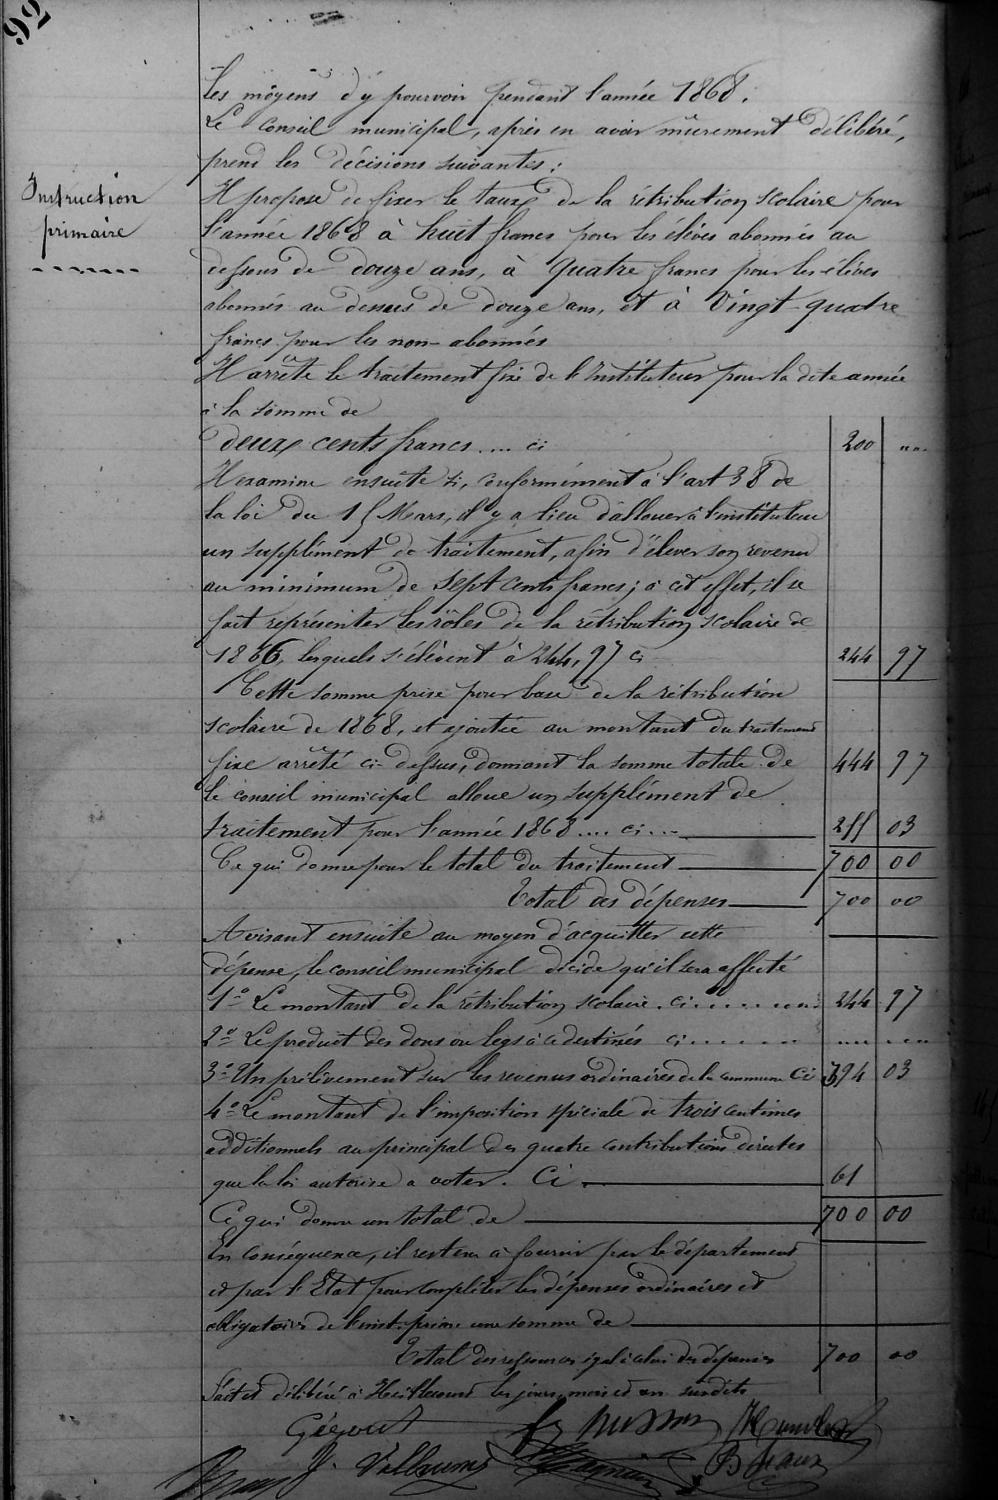 92
Instruction
primaire
les moyens d'y pourvoir pendant l'année 1868.
Le Conseil municipal, après en avoir mûrement délibéré,
prend les décisions suivantes :
Il propose de fixer le taux de la rétribution scolaire pour
l'année 1868 à huit francs pour les élèves abonnés au
dessous de douze ans, à quatre francs pour les élèves
abonnés au dessus de douze ans, et à vingt-quatre
francs pour les non-abonnés
Il arrête le traitement fixe de l'Instituteur pour la dite année
à la somme de
deux cents francs .... ci 200 "
Il examine ensuite si, conformément à l'art 38 de
la loi du 15 Mars, il y a lieu d'allouer à l'instituteur
un supplément de traitement, afin d'élever son revenu
au minimum de sept cents francs ; à cet effet, il se
fait représenter les rôles de la rétribution scolaire de
1866, lesquels s'élèvent à 244,97 ci 244 97
Cette somme prise pour base de la rétribution
scolaire de 1868, et ajoutée au montant du traitement
fixe arrêté ci-dessus, donnant la somme totale de 444 97
le conseil municipal alloue un supplément de
traitement pour l'année 1868 .... ci ... 255 03
Ce qui donne pour le total du traitement 700 00
Total des dépenses 700 00
Avisant ensuite au moyen d'acquitter cette
dépense, le conseil municipal décide qu'il sera affecté
1° Le montant de la rétribution scolaire. ci ........ 244 97
2° Le produit des dons ou legs à ce destinés ci .......
3° Un prélèvement sur les revenus ordinaires de la commune Ci 394 03
4° Le montant de l'imposition spéciale de trois centimes
additionnels au principal des quatre contributions directes
que la loi autorise a voter. Ci 61
Ce qui donne un total de 700 00
En Conséquence, il restera à fournir par le département
et par l'Etat pour compléter les dépenses ordinaires et
obligatoires de l'inst. prim. une somme de
Total des ressources égal à celui des dépenses 700 00
Fait et délibéré à les jours, mois et an susdits
Gégout
Villaume